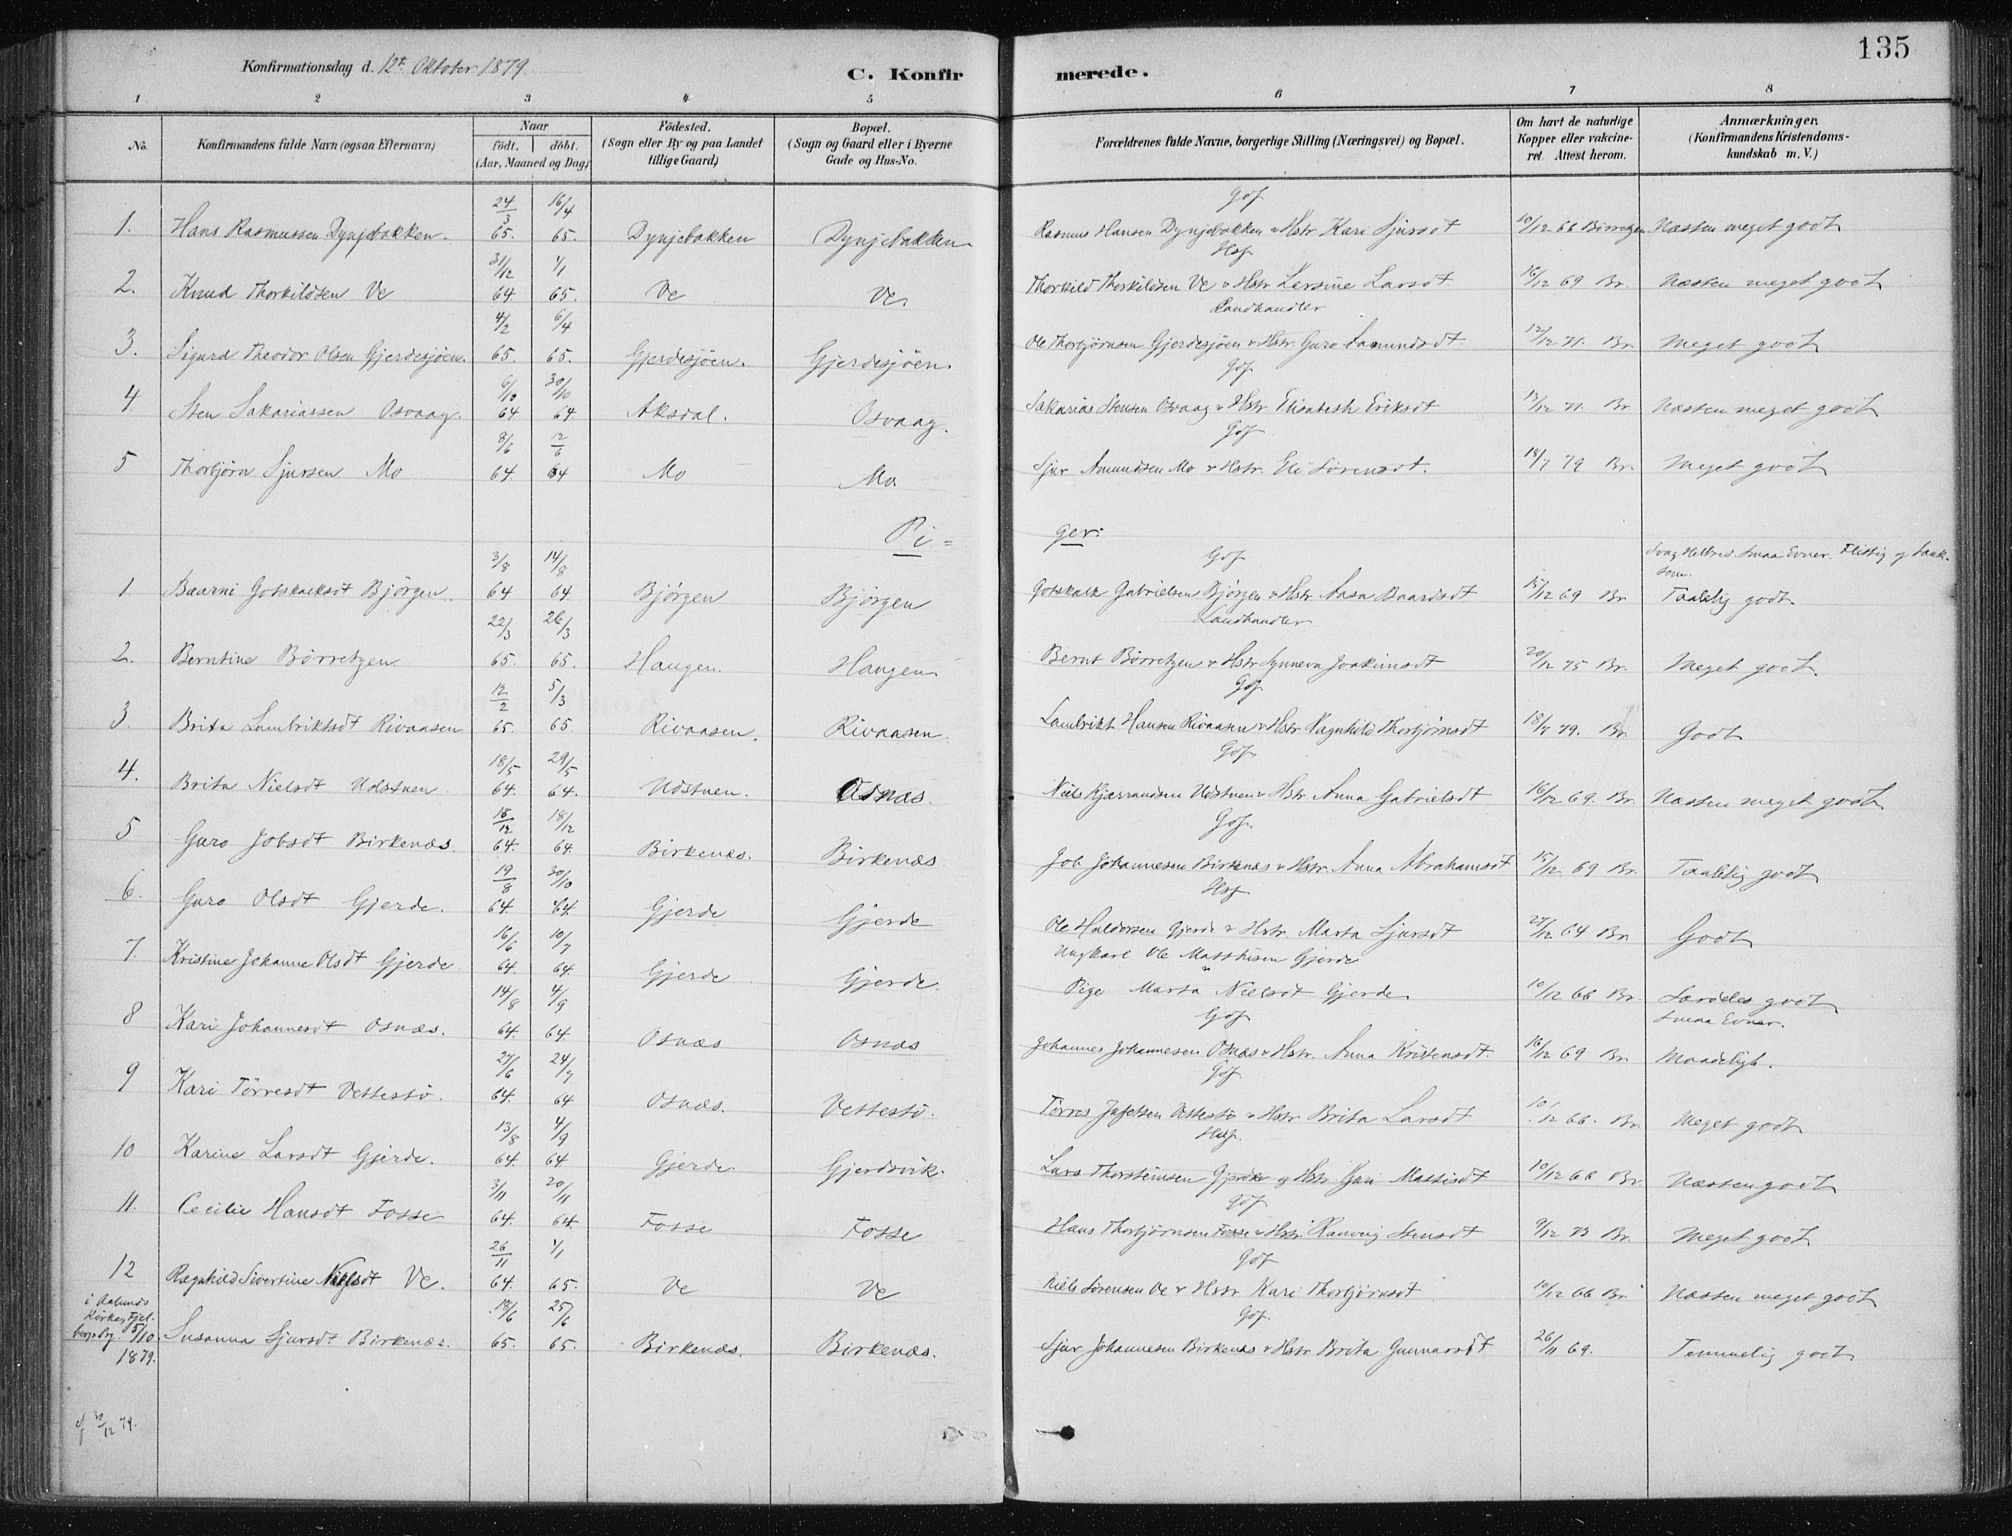 135
Konfirmationsdag d. 12te Oktober 1879.
C. Konfir merede.
1 2 3 4 5 6 7 8
No. Konfirmandens fulde Navn (ogsaa Efternavn) Naar født. døbt. (Aar, Maaned og Dag) Fødested. (Sogn eller By og paa Landet tillige Gaard) Bopæl. (Sogn og Gaard eller i Byerne Gade og Hus-No. Forældrenes fulde Navne, borgerlige Stilling (Næringsvei) og Bopæl. Om havt de naturlige Kopper eller vakcineret Attest herom. Anmærkninger. (Konfirmandens Kristendomskundskab m. V.)
24/3 16/4 Gbf
1. Hans Rasmussen Dynjebakken. 65. 65. Dynjebakken Dynjebakken Rasmus Hansen Dynjebakken & Hstr Kari Sjursdt 10/12 66 Børretzen Næsten meget godt
31/12 1/1 Hsf
2. Knud Thorkildsen Ve 64. 65. Ve Ve Thorkild Thorkildsen Ve & Hstr Larsine Larsdt 16/12 69 Br. Næsten meget godt
4/2 6/4 Landhandler
3. Sigurd Theodor Olsen Gjerdesjøen. 65. 65. Gjerdesjøen. Gjerdesjøen. Ole Thorbjørnsen Gjerdesjøen & Hstr. Guro Aamundsdt. 12/12 71. Br. Meget godt
6/10 30/10 Gbf
4 Sten Sakariassen Osvaag. 64 64 Aksdal. Osvaag. Sakarias Stensen Osvaag & Hstr Elisabeth Eriksdt 13/12 71. Br Næsten meget godt
8/6 12/6 Gbf.
5 Thorbjørn Sjursen Mo 64. 64 Mo Mo Sjur Amundsen Mo & Hstr. Eli Sørensdt. 18/7 79 Br. Meget godt
Pi= ger:
3/8 14/8 Gbf Svag Helbred. Smaa Evner. Flittig og
1. Baarni Gotskalksdt Bjørgen. 64 64 Bjørgen Bjørgen Gotskalk Gabrielsen Bjørgen & Hstr. Aasa Baardsdt 15/12 69 Br Taalelig godt.
22/3 26/3 Landhandler
2. Berntine Børretzen 65. 65. Haugen Haugen Bernt Børretzen & Hstr Synneva Joakimsdt 20/12 75 Br. Meget godt
12/2 5/3 Gbf
3. Brita Lambriktsdt Rivaasen 65. 65 Rivaasen. Rivaasen. Lambrikt Hansen Rivaasen & Hstr Ragnhild Thorbjørnsdt 18/7 79. Br Godt
18/5 29/5 Gbf.
4. Brita Nielsdt Udstuen 64. 64. Udstuen. Osnæs. Niels Kjærrandsen Udstuen & Hstr Anna Gabrielsdt 16/12 69. Br. Næsten meget godt
16/12 18/12 Gbf.
5 Guro Jobsdt Birkenæs. 64. 64. Birkenæs. Birkenæs Job Johannesen Birkenæs & Hstr. Anna Abrahamsdt 15/12 69 Br. Taalelig godt
19/8 30/10 Hsf
6. Guro Olsdt Gjerde. 64. 64. Gjerde Gjerde Ole Haldorsen Gjerde & Hstr. Marta Sjursdt 27/12 64 Br Godt
16/6 10/7 Ungkarl Ole Matthisen Gjerde
7. Kristine Johanne Olsdt Gjerde 64 64. Gjerde Gjerde. Pige Marta Nielsdt Gjerde 10/12 66 Br. Særdeles godt
14/8 4/9 Gbf Smaa Evner.
8 Kari Johannesdt Osnæs. 64. 64. Osnæs Osnæs Johannes Johannesen Osnæs & Hstr. Anna Kristensdt. 16/12 69 Br Maadeligt.
27/6 24/7 Gbf.
9 Kari Tørresdt Vettestø. 64. 64 Osnæs. Vettestø. Tørres Jafetsen Vettestø & Hstr Brita Larsdt 10/12 66. Br. Meget godt
13/8 4/9 Hsf.
10 Karine Larsdt Gjerde. 64. 64 Gjerde. Gjerdsvik. Lars Thorsteinsen Gjerde & Hstr Guri Mattisdt 10/12 66 Br. Næsten godt
3/11 20/11 Gbf
11. Cecilie Hansdt Fosse 64. 64. Fosse Fosse Hans Thorbjørnsen Fosse & Hstr Ranveig Stensdt 9/12 73 Br. Meget godt
26/11 1/1 Gbf
12 Ragnhild Sivertine Nielsdt Ve. 64. 65. Ve Ve Niels Sørensen Ve & Hstr Kari Thorbjørnsdt 10/12 66 Br Næsten meget godt
i Ølunds Kirke, Fjelbergs Pg 5/10. 1879. 18/6 25/6 Gbf.
Susanna Sjursdt Birkenæs. 65. 65. Birkenæs. Birkenæs. Sjur Johannesen Birkenæs & Hstr Brita Gunnarsdt 26/11 69. Temmelig godt
cf 30/12 79.